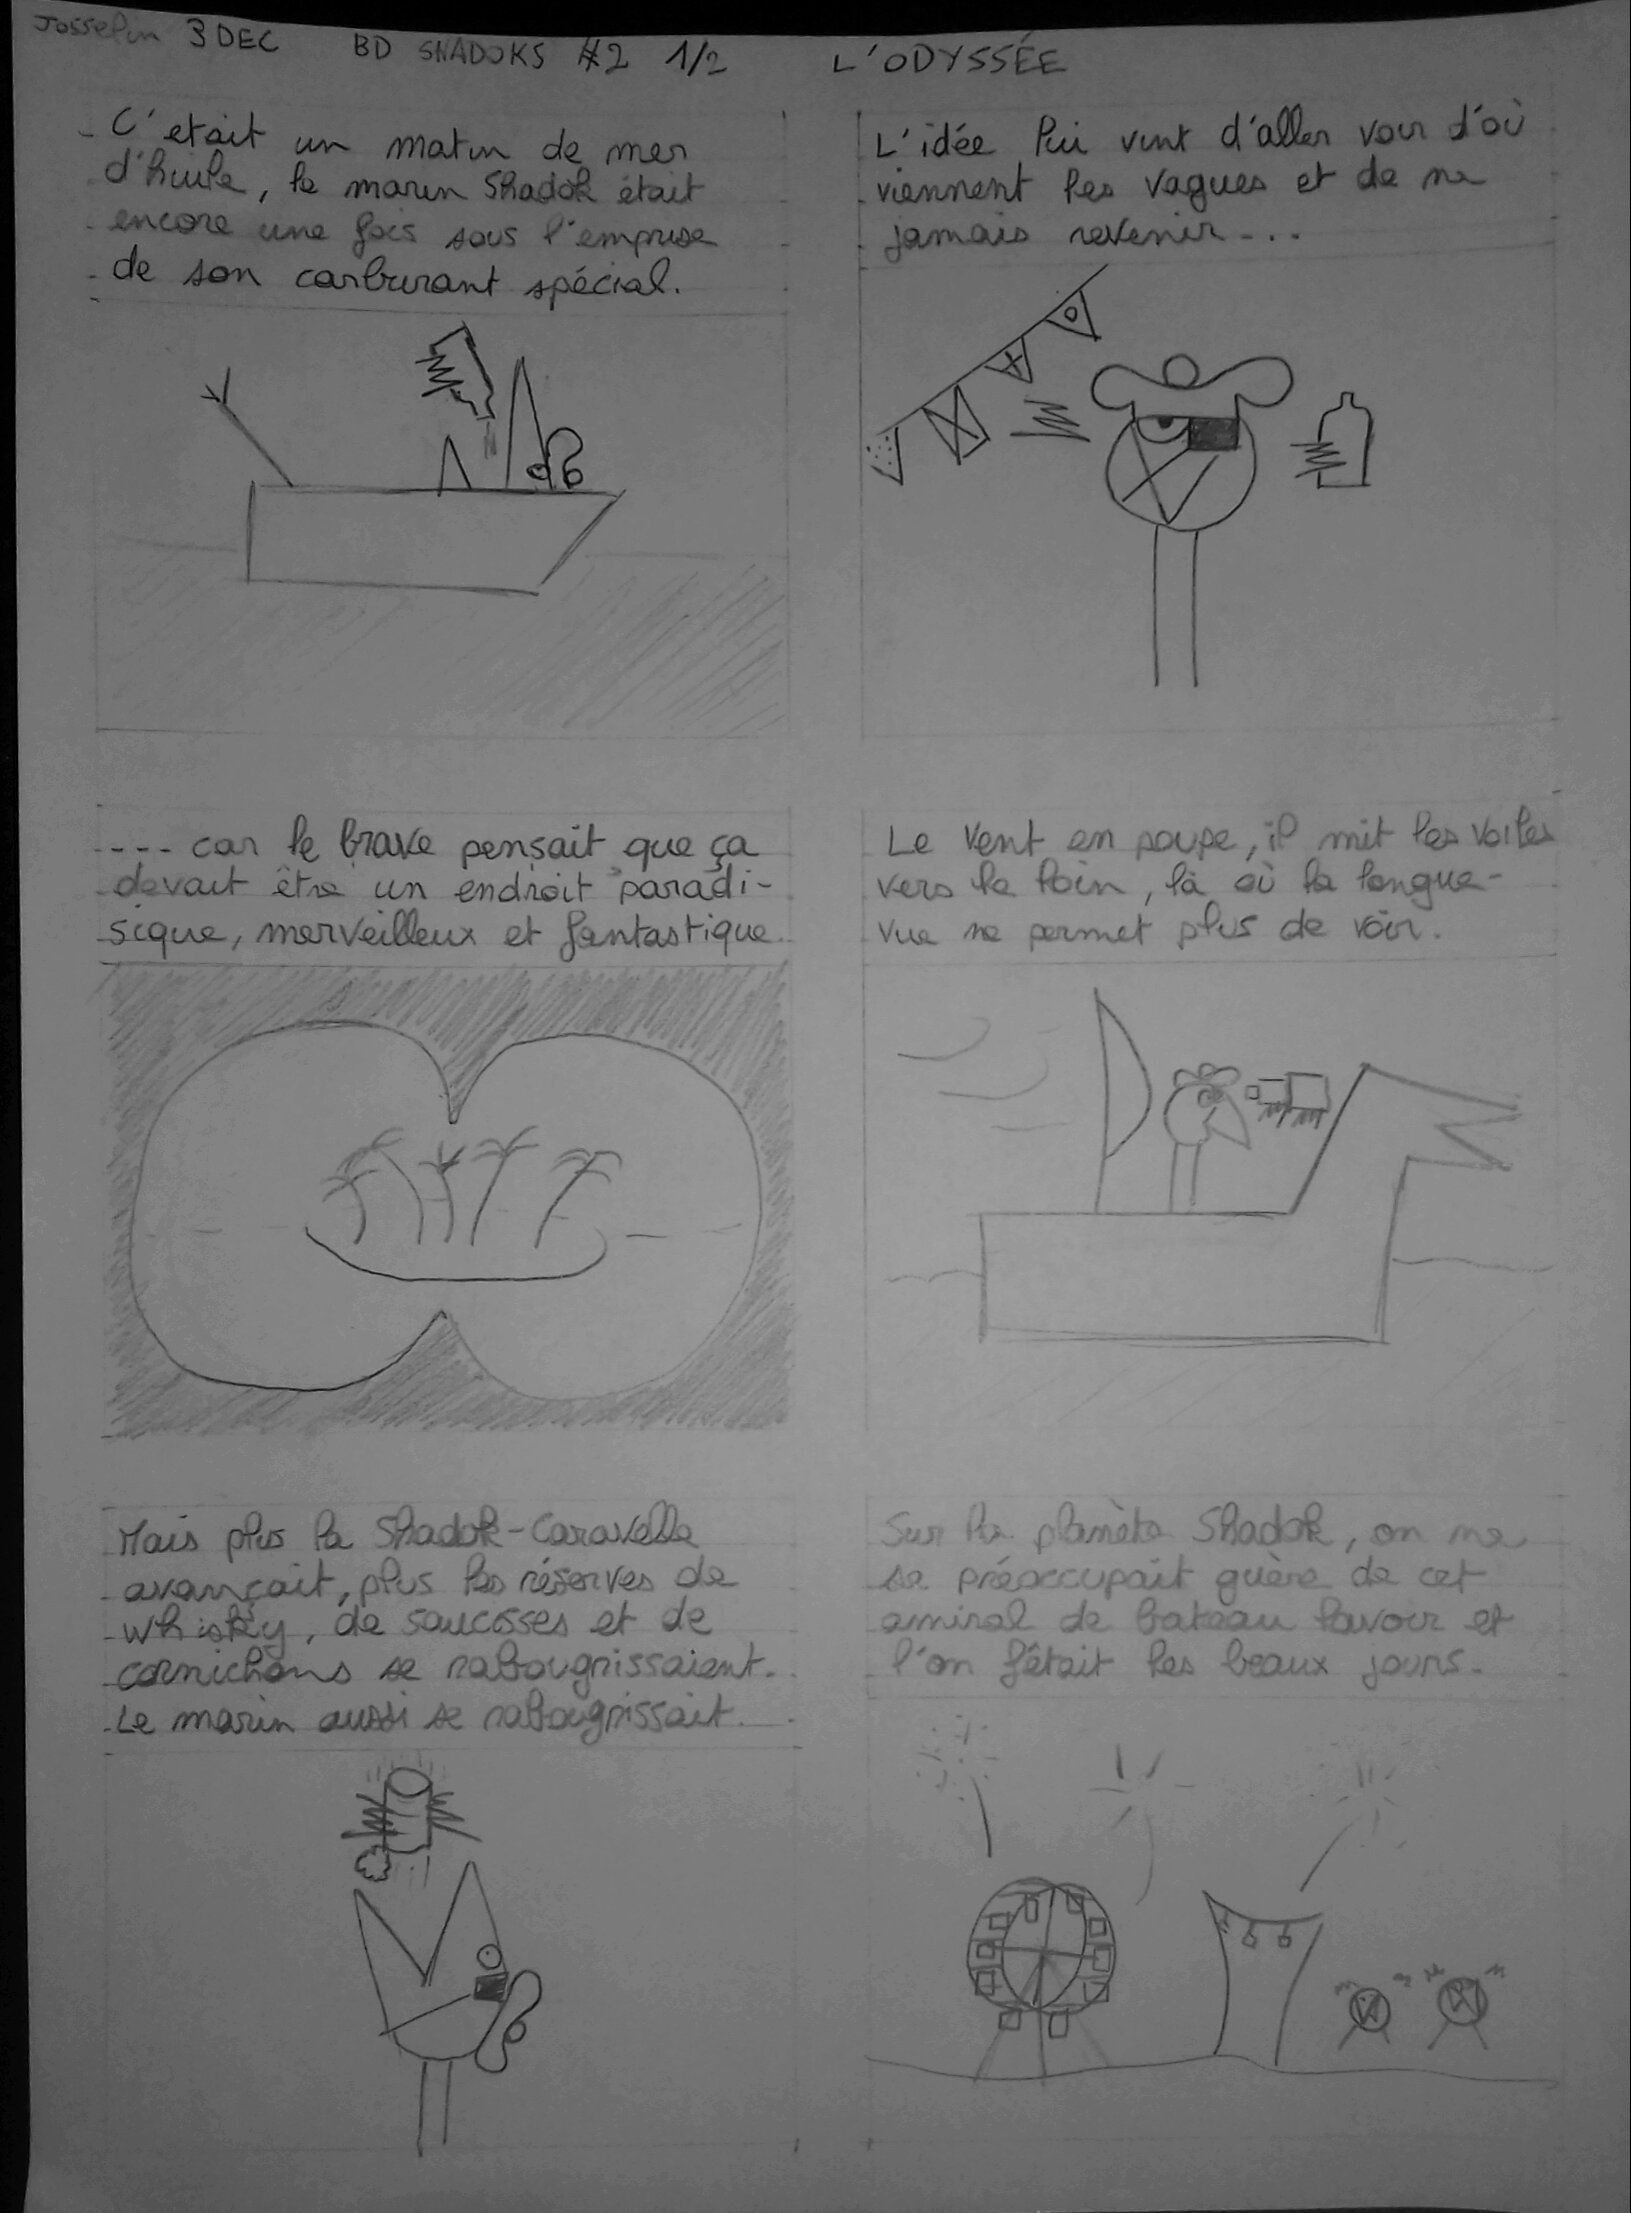 Josselin 3 DEC BD SHADOKS #2 1/2 L'ODYSSÉE
C'etait un matin de mer
d'huile, le marin Shadok était
encore une fois sous l'emprise
de son carburant spécial.
L'idée lui vint d'aller voir d'où
viennent les vagues et de ne
jamais revenir...
.... car le brave pensait que ça
devait être un endroit paradi-
sique, merveilleux et fantastique.
Le vent en poupe, il mit les voiles
vers le loin, là où la longue-
vue ne permet plus de voir.
Mais plus la Shadok-Caravelle
avançait, plus les réserves de
whisky, de saucisses et de
cornichons se rabougrissaient.
Le marin aussi se rabougrissait.
Sur la planète Shadok, on ne
se préoccupait guère de cet
amiral de bateau lavoir et
l'on fêtait les beaux jours.